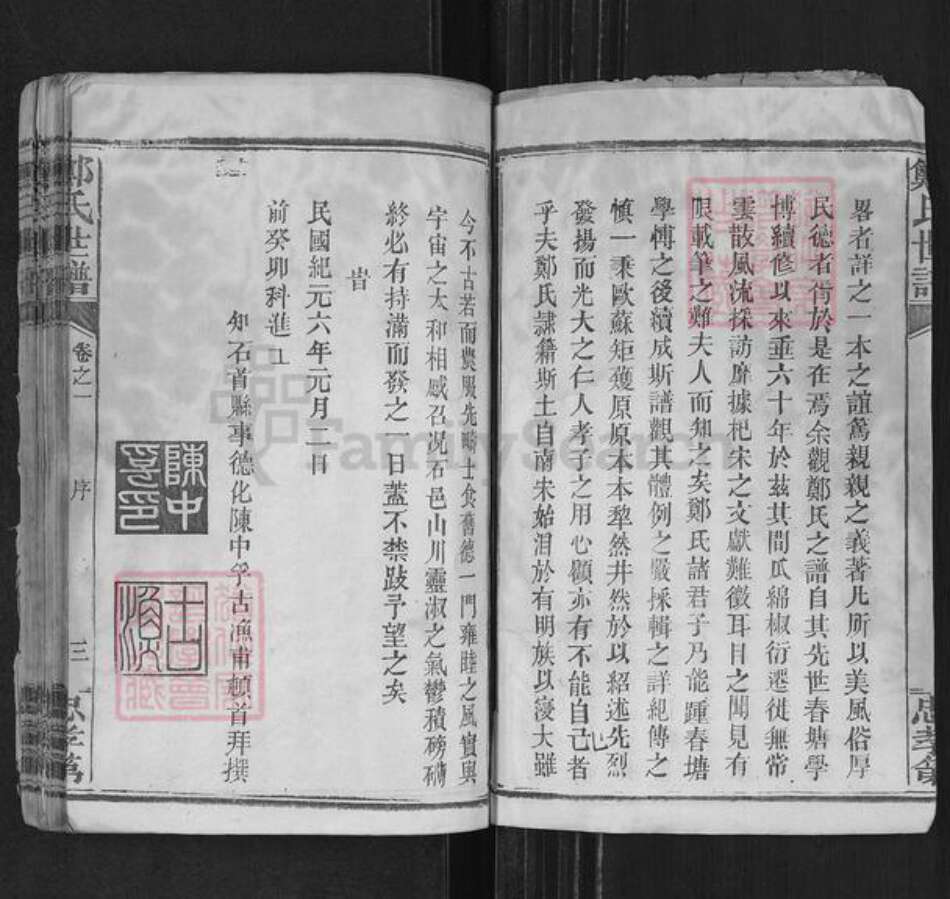 畧者詳之一本之誼篤親親之義著凡所以美風俗厚
民德者符於是在焉余觀鄭氏之譜自其先世春塘學
博續修以來垂六十年於茲其間瓜綿椒衍遷徙無常
雲散風流採訪靡據杞宋之文獻難徵耳目之聞見有
限載筆之難夫人而知之矣鄭氏諸君子乃能踵春塘
學博之後續成斯譜觀其體例之嚴採輯之詳紀傳之
慎一秉歐蘇矩矱原原本本犂然井然於以紹述先烈
發揚而光大之仁人孝子之用心顧亦有不能自己者
也
乎夫鄭氏隷籍斯土自南宋始洎於有明族以寖大雖
今不古若而農服先疇士食舊德一門雍睦之風實與
宇宙之大和相感召况石邑山川靈淑之氣鬱積磅礴
終必有持滿而發之一日葢不禁跂予望之矣
旹
民國紀元六年元月二日
前癸卯科進士
知石首縣事德化陳中孚古漁甫頓首拜撰
陳中孚印
古漁
鄭氏世譜
卷之一
序
三
忠孝第
鄭氏世譜
忠孝第
FamilySearch